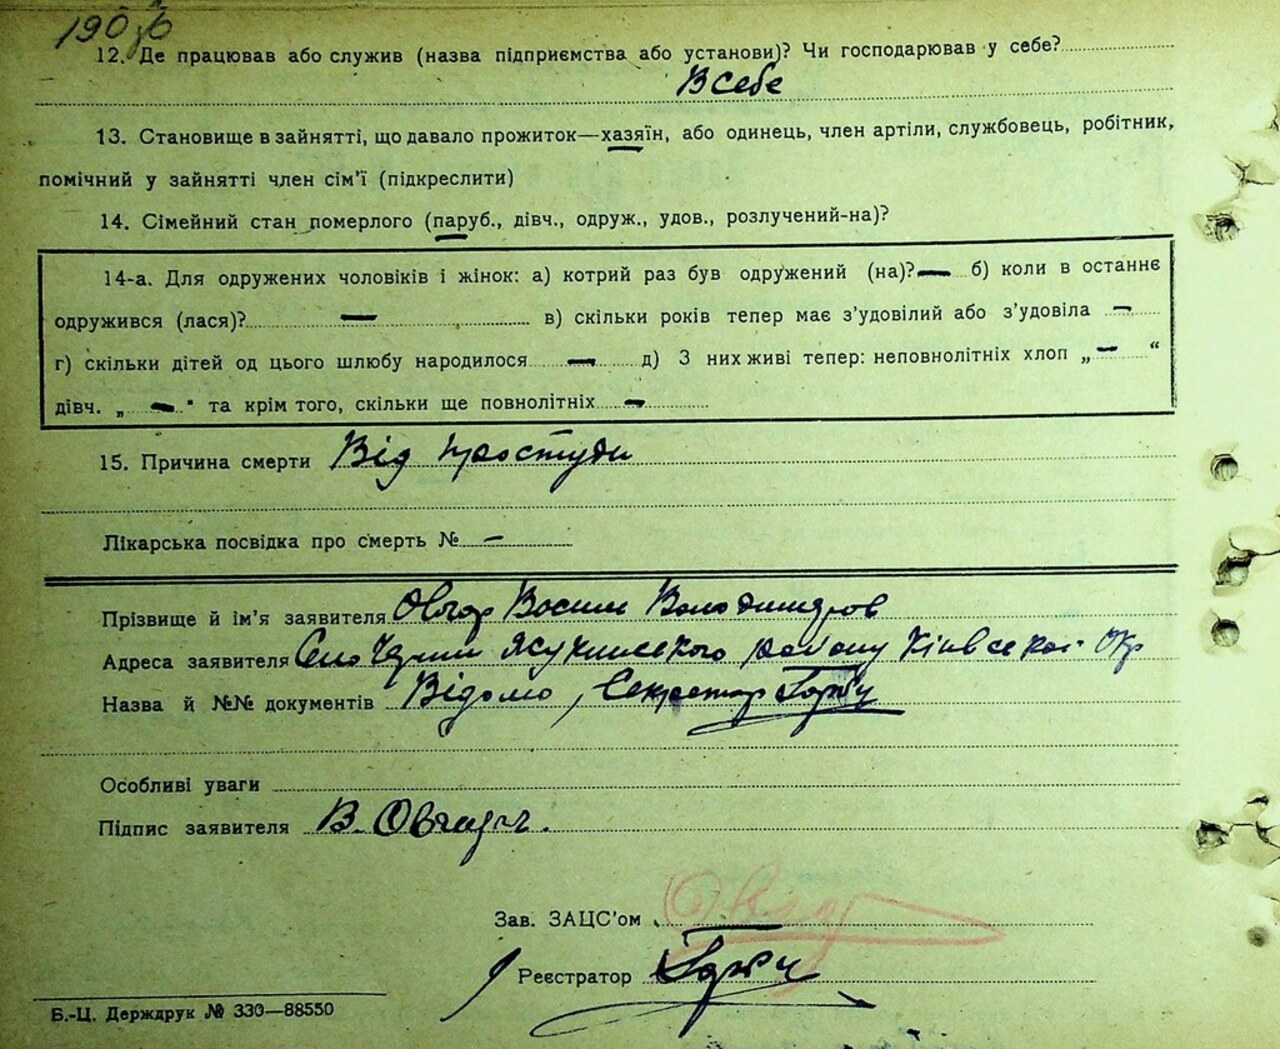 12. Де працював або служив (назва підприємства або установи)? Чи господарював у себе?
В себе
13. Становище в зайнятті, що давало прожиток—хазяїн, або одинець, член артіли, службовець, робітник,
помічний у зайнятті член сім'ї (підкреслити)
14. Сімейний стан померлого (паруб., дівч., одруж., удов., розлучений-на)?
14-а. Для одружених чоловіків і жінок: а) котрий раз був одружений (на)? — б) коли в останнє
одружився (лася)? — в) скільки років тепер має з'удовілий або з'удовіла —
г) скільки дітей од цього шлюбу народилося — д) З них живі тепер: неповнолітніх хлоп „ — “
дівч. „ — " та крім того, скільки ще повнолітніх —
15. Причина смерти Від простуди
Лікарська посвідка про смерть № —
Прізвище й ім'я заявителя Овчар Василь Володимиров
Адреса заявителя Село району Київської Окр
Назва й №№ документів Відомо, Секретар
Особливі уваги
Підпис заявителя В. Овчар
Зав. ЗАЦС'ом
Реєстратор
Б.-Ц. Держдрук № 330—88550